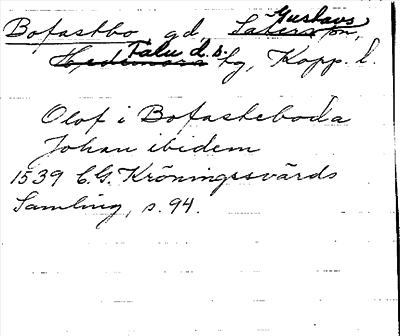 Bofastbo gd, Gustavs sn,
Falu d.s. fg, Kopp. l.
Olof i Bofasteboda
Johan ibidem
1539 C.G. Kröningssvärds
Samling, s. 94.